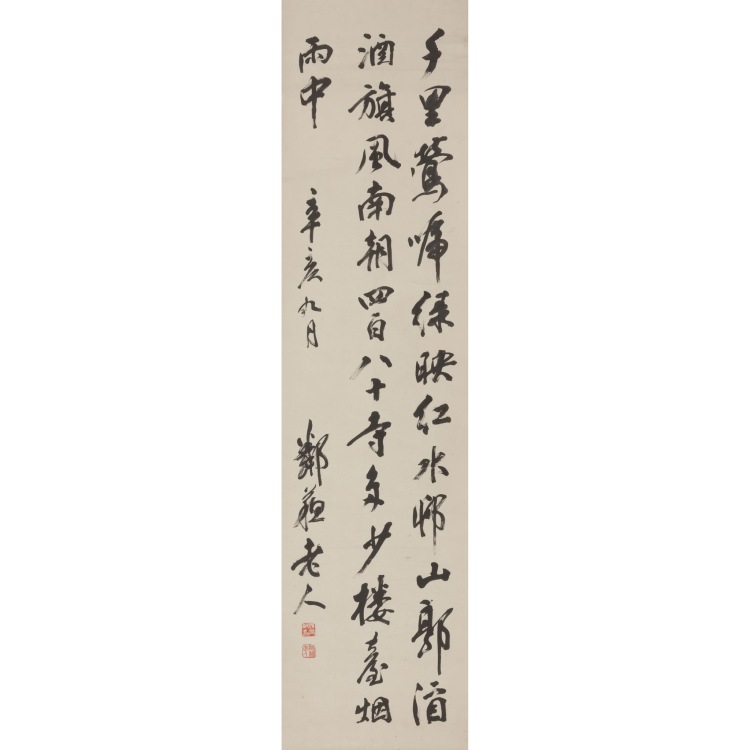 千里鶯啼緑映紅水邨山郭酒
酒旗風南朝四百八十寺多少樓臺烟
雨中 辛亥九月 鄰蘇老人